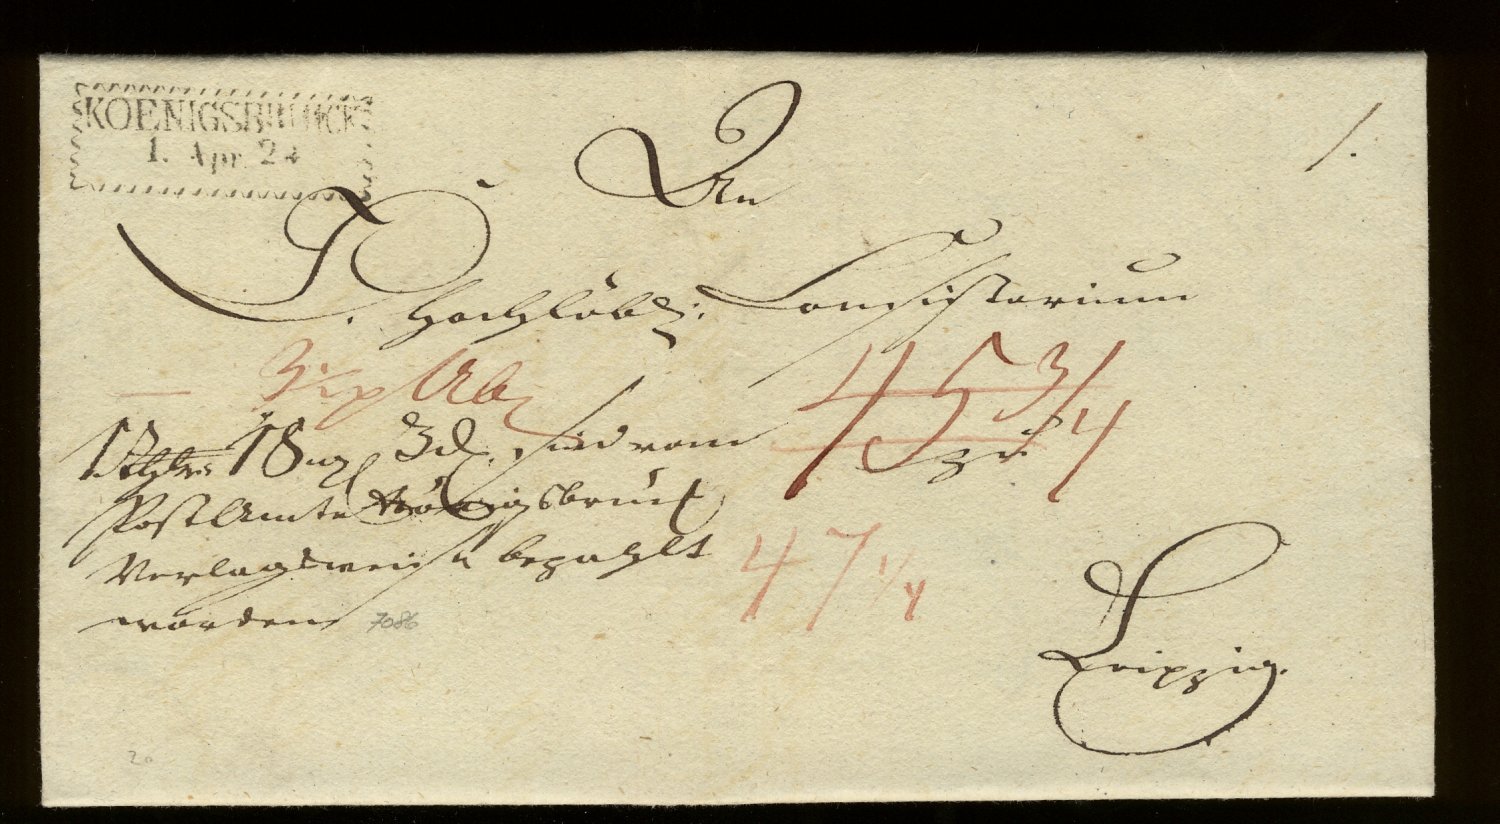 KOENIGSBRUECK
1. Apr 24
1.
An
E. Hochlöbl: Consistorium
zu
Leipzig.
1 Rthlr. 18 ngr 3 d. sind vom
Post Amte Königsbrück
Verlagsweise bezahlt
worden
45 3/4
47 1/4
7086
20